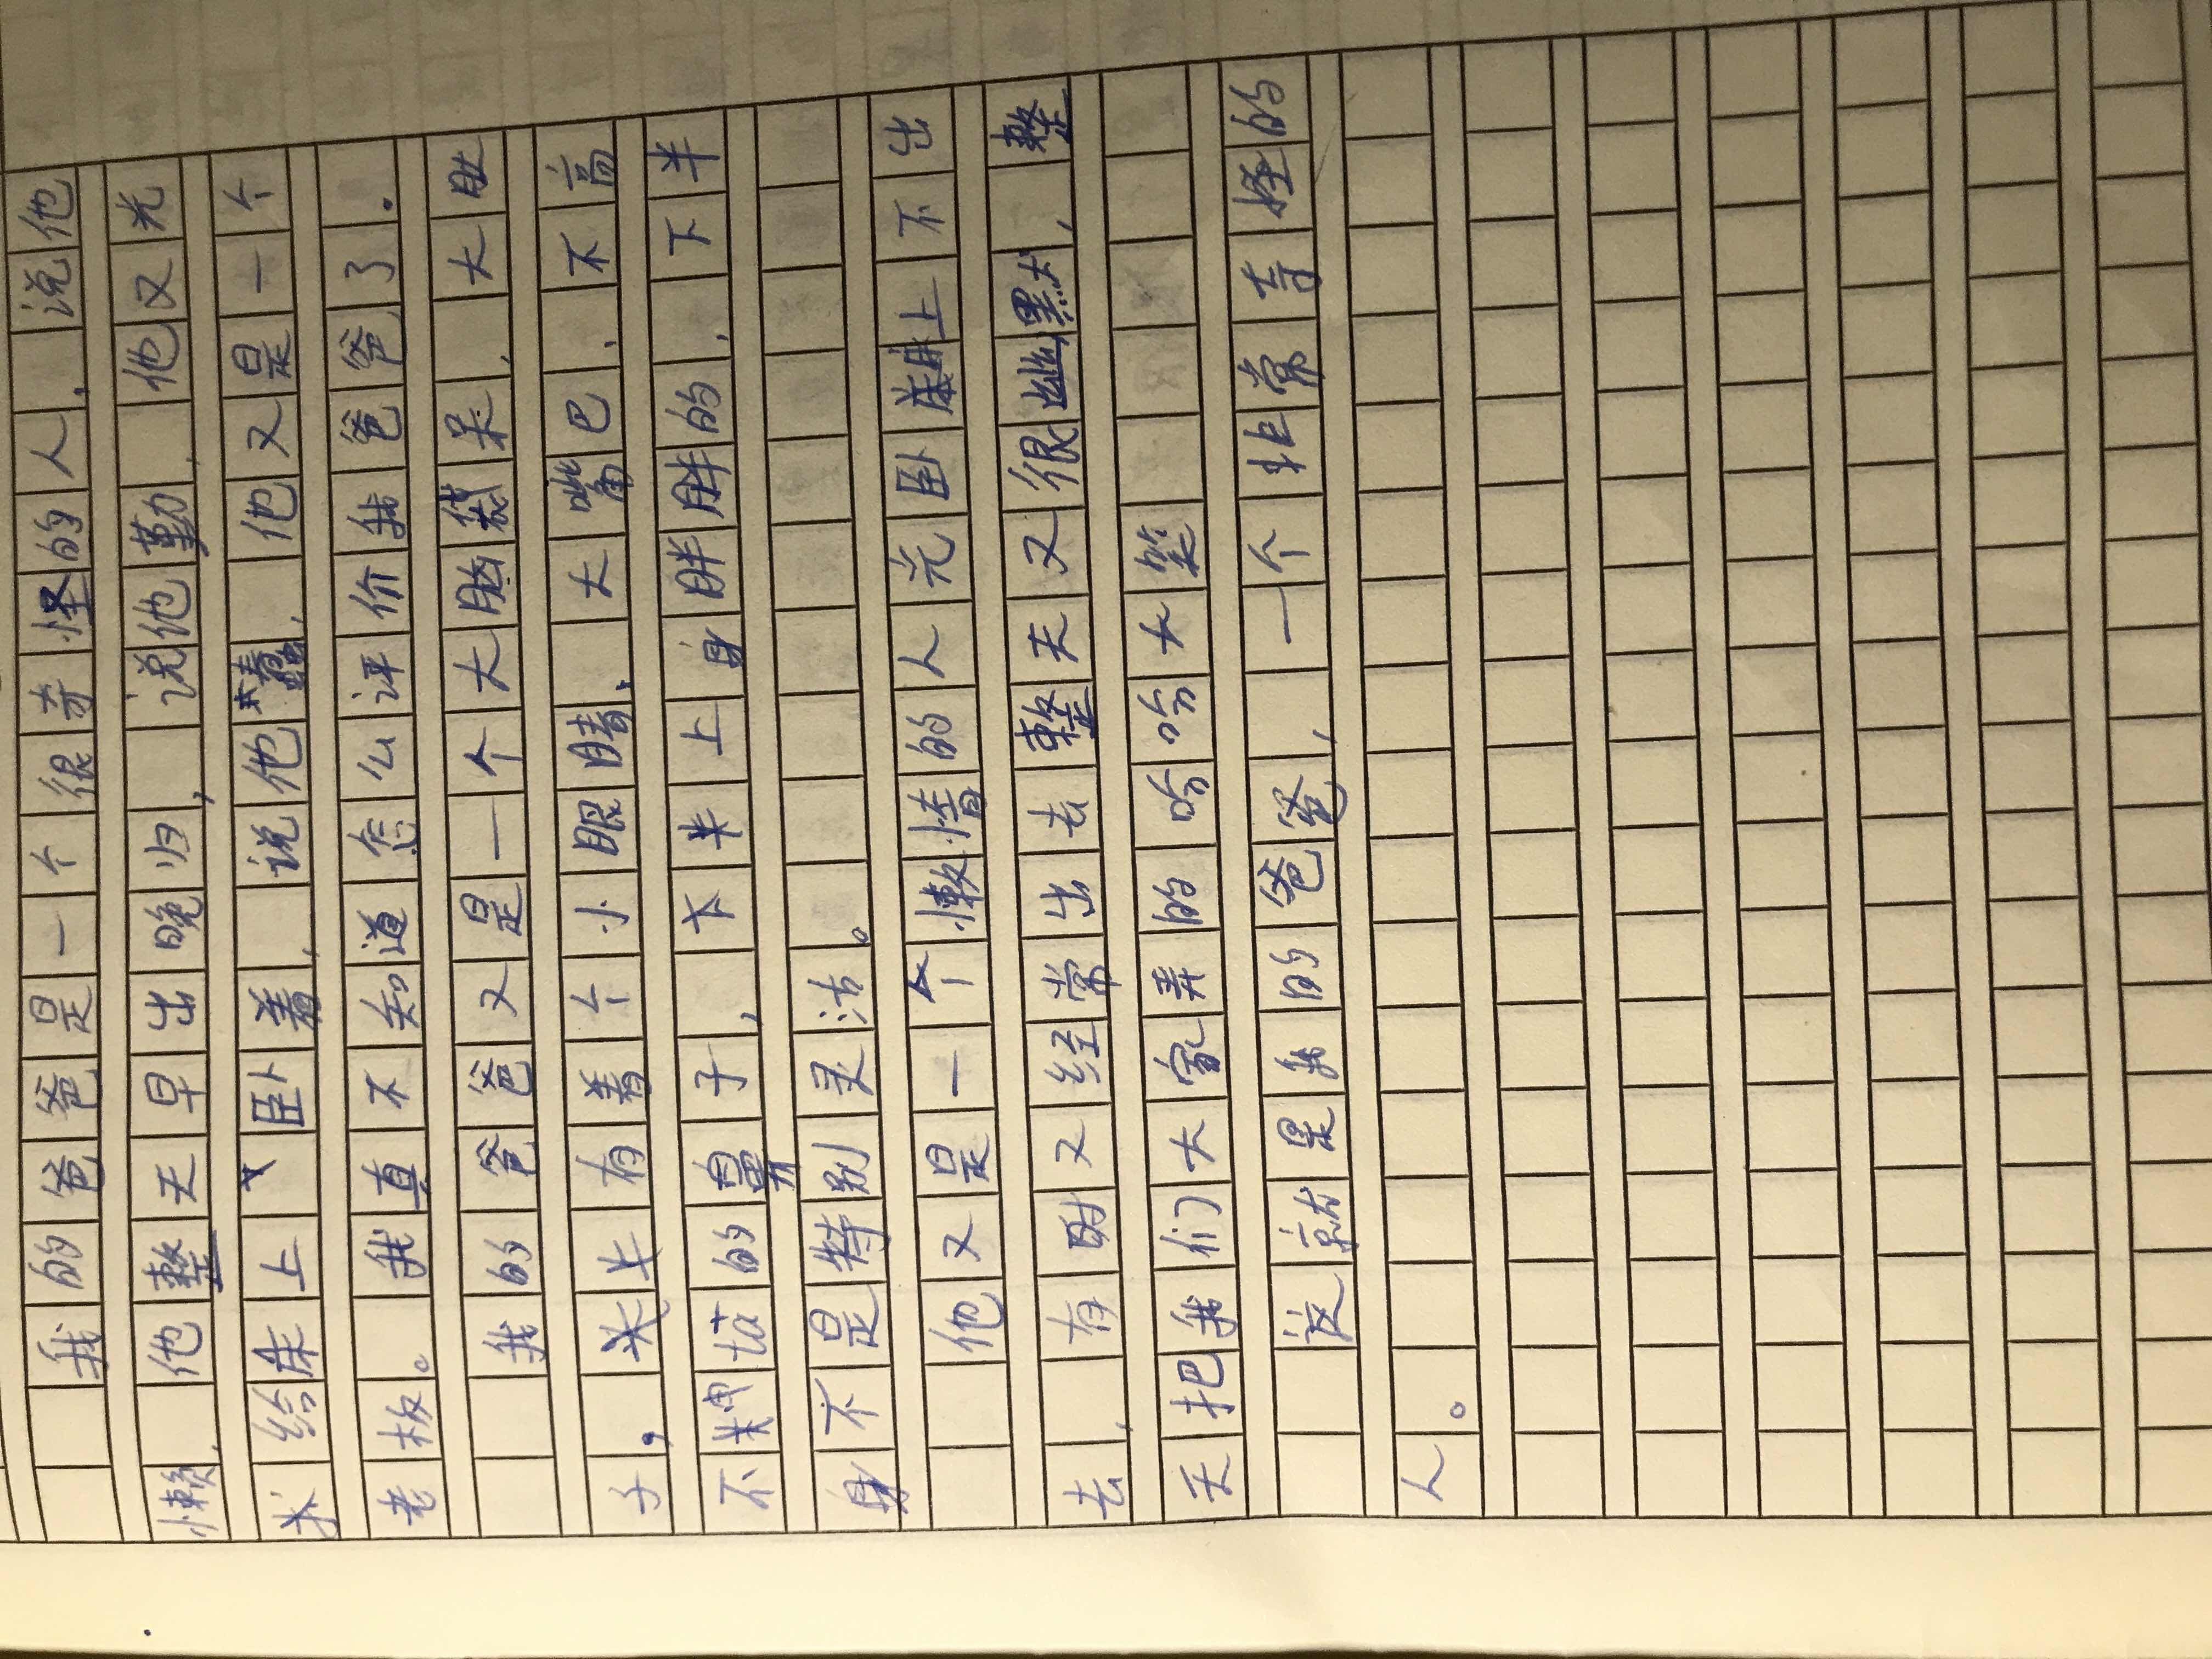 我的爸爸是一个很奇怪的人，说他
懒，他整天早出晚归，说他勤，他又光
求给床上卧着，说他蠢，他又是一个
老板。我真不知道怎么评价我爸爸了。
我的爸爸又是一个大脑袋呆，大肚
子，长长有着个小眼睛，大嘴巴，不高
不tā的鼻子，下半上身胖胖的，下半
身不是特别灵活。
他又是一个懒惰的人光卧床上不出
去，有时又经常出去整天又很幽默，整
天把我们大家弄的哈哈大笑
这就是我的爸爸，一个非常古怪的
人。